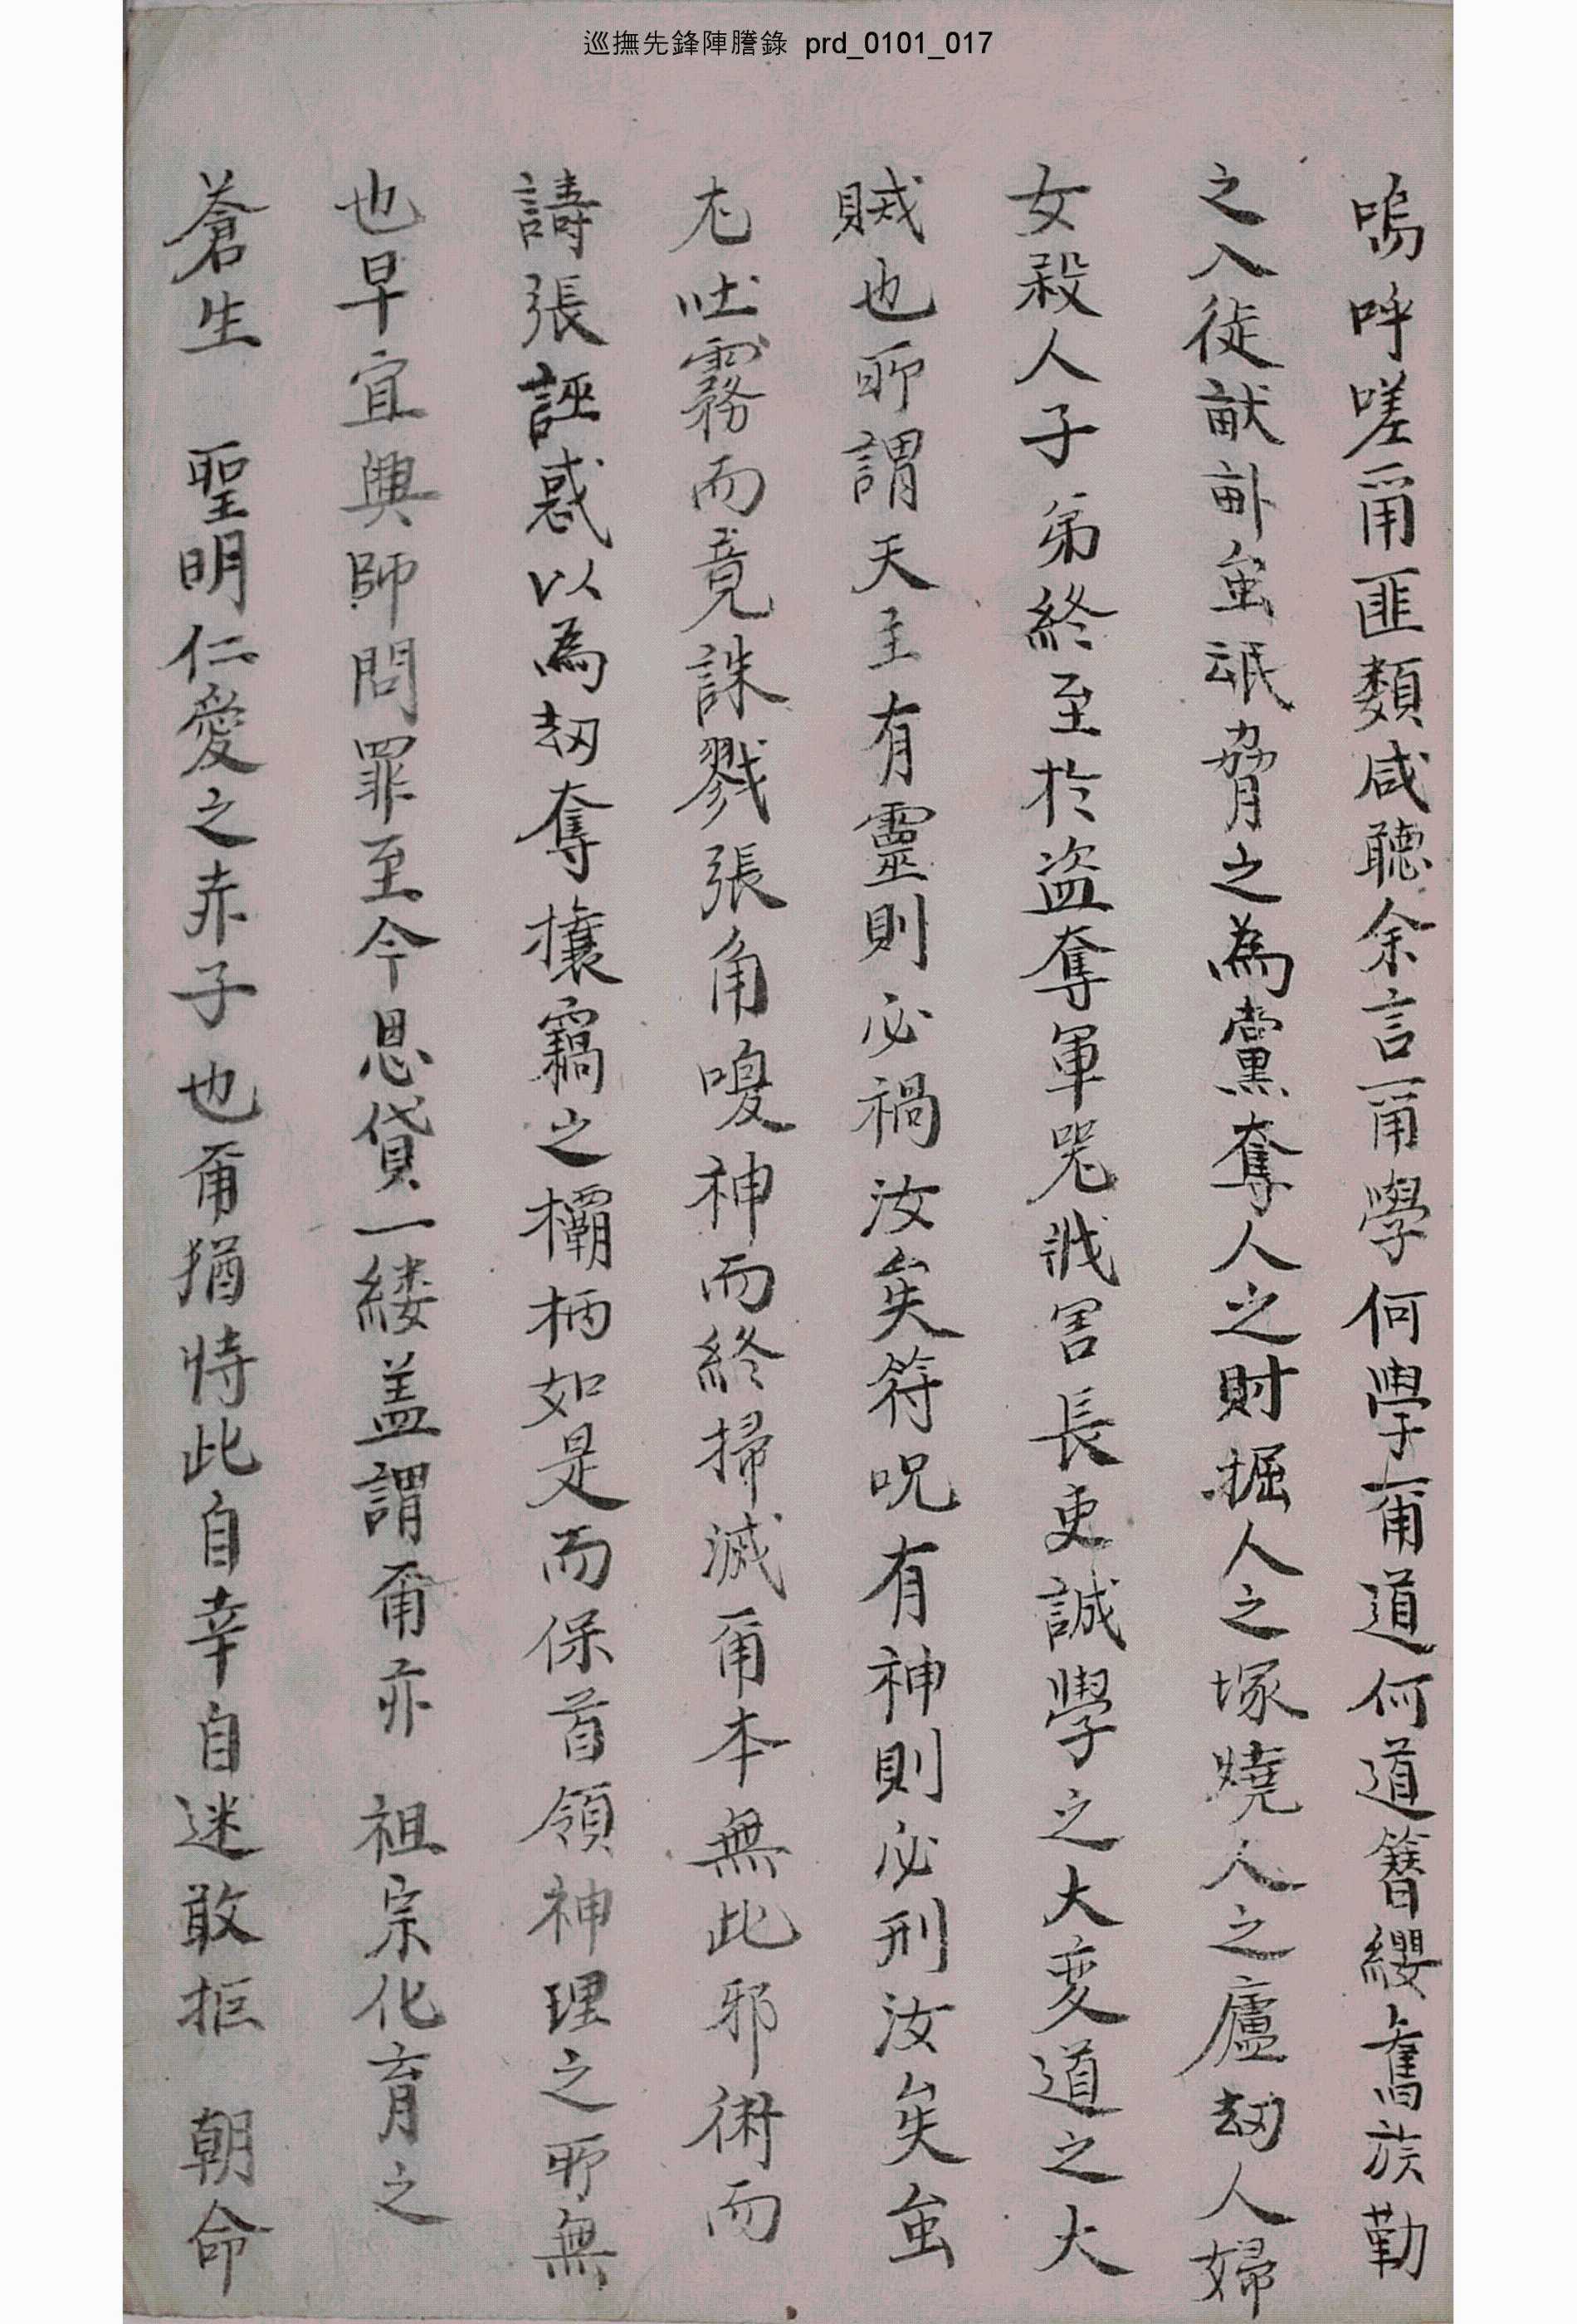 巡撫先鋒陣謄錄 prd_0101_017
嗚呼嗟爾匪類咸聽余言爾學何學爾道何道簪纓舊族勒
之入徒畎畝蚩氓脅之為黨奪人之財掘人之塚燒人之廬刼人婦
女殺人子弟終至於盜奪軍器戕害長吏誠學之大変道之大
賊也所謂天主有靈則必禍汝矣符呪有神則必刑汝矣蚩
尤吐霧而竟誅戮張角嗖神而終掃滅爾本無此邪術而
譸張誣惑以為刼奪攘竊之欛柄如是而保首領神理之所無
也早宜興師問罪至今恩貸一縷盖謂爾亦 祖宗化育之
蒼生 聖明仁愛之赤子也爾猶恃此自幸自迷敢拒 朝命